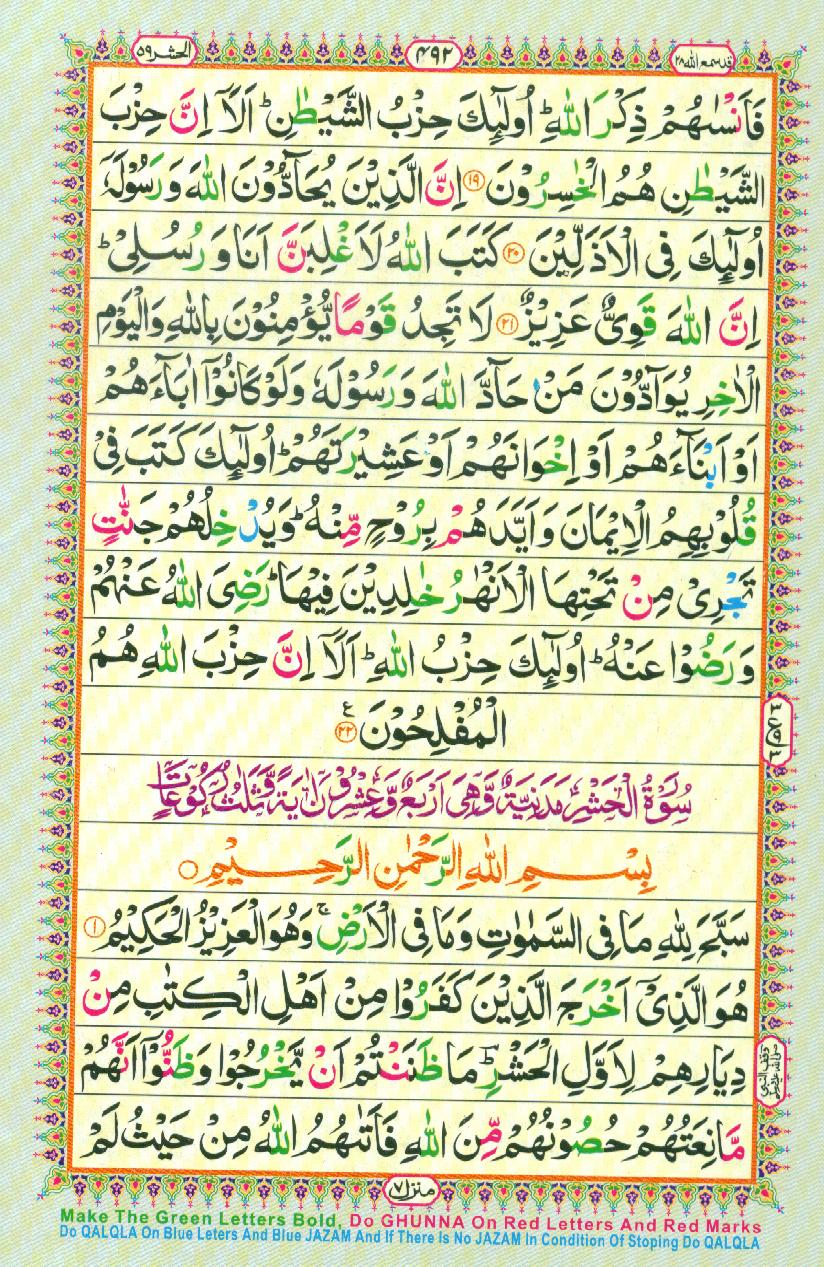 قد سمع الله ۲۸
۴۹۲
الحشر ۵۹
فَاَنْسٰىهُمْ ذِكْرَ اللّٰهِ ؕ اُولٰٓئِكَ حِزْبُ الشَّيْطٰنِ ؕ اَلَاۤ اِنَّ حِزْبَ
الشَّيْطٰنِ هُمُ الْخٰسِرُوْنَ ۱۹ اِنَّ الَّذِيْنَ يُحَآدُّوْنَ اللّٰهَ وَ رَسُوْلَهٗۤ
اُولٰٓئِكَ فِى الْاَذَلِّيْنَ ۲۰ كَتَبَ اللّٰهُ لَاَغْلِبَنَّ اَنَا وَ رُسُلِىْ ؕ
اِنَّ اللّٰهَ قَوِىٌّ عَزِيْزٌ ۲۱ لَا تَجِدُ قَوْمًا يُّؤْمِنُوْنَ بِاللّٰهِ وَالْيَوْمِ
الْاٰخِرِ يُوَآدُّوْنَ مَنْ حَآدَّ اللّٰهَ وَ رَسُوْلَهٗ وَ لَوْ كَانُوْۤا اٰبَآءَهُمْ
اَوْ اَبْنَآءَهُمْ اَوْ اِخْوَانَهُمْ اَوْ عَشِيْرَتَهُمْ ؕ اُولٰٓئِكَ كَتَبَ فِىْ
قُلُوْبِهِمُ الْاِيْمَانَ وَ اَيَّدَهُمْ بِرُوْحٍ مِّنْهُ ؕ وَ يُدْخِلُهُمْ جَنّٰتٍ
تَجْرِىْ مِنْ تَحْتِهَا الْاَنْهٰرُ خٰلِدِيْنَ فِيْهَا ؕ رَضِىَ اللّٰهُ عَنْهُمْ
وَ رَضُوْا عَنْهُ ؕ اُولٰٓئِكَ حِزْبُ اللّٰهِ ؕ اَلَاۤ اِنَّ حِزْبَ اللّٰهِ هُمُ
الْمُفْلِحُوْنَ ۲۲ ع
سُوْرَةُ الْحَشْرِ مَدَنِيَّةٌ وَّهِىَ اَرْبَعٌ وَّعِشْرُوْنَ اٰيَةً وَّثَلٰثُ رُكُوْعَاتٍ
بِسْمِ اللّٰهِ الرَّحْمٰنِ الرَّحِيْمِ
سَبَّحَ لِلّٰهِ مَا فِى السَّمٰوٰتِ وَمَا فِى الْاَرْضِ ۚ وَهُوَ الْعَزِيْزُ الْحَكِيْمُ ۱
هُوَ الَّذِىْۤ اَخْرَجَ الَّذِيْنَ كَفَرُوْا مِنْ اَهْلِ الْكِتٰبِ مِنْ
دِيَارِهِمْ لِاَوَّلِ الْحَشْرِ ؕ مَا ظَنَنْتُمْ اَنْ يَّخْرُجُوْا وَ ظَنُّوْۤا اَنَّهُمْ
مَّانِعَتُهُمْ حُصُوْنُهُمْ مِّنَ اللّٰهِ فَاَتٰىهُمُ اللّٰهُ مِنْ حَيْثُ لَمْ
منزل ۷
Make The Green Letters Bold, Do GHUNNA On Red Letters And Red Marks
Do QALQLA On Blue Leters And Blue JAZAM And If There Is No JAZAM In Condition Of Stoping Do QALQLA